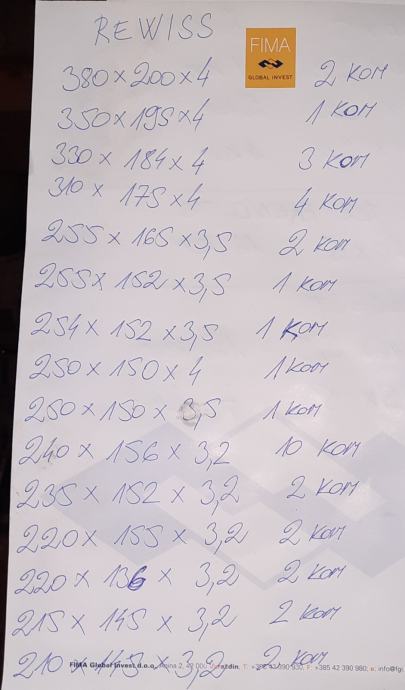 REWISS
FIMA
GLOBAL INVEST
380 x 200 x 4 2 kom
350 x 195 x 4 1 kom
330 x 184 x 4 3 kom
310 x 175 x 4 4 kom
255 x 165 x 3,5 2 kom
255 x 152 x 3,5 1 kom
254 x 152 x 3,5 1 kom
250 x 150 x 4 1 kom
250 x 150 x 3,5 1 kom
240 x 156 x 3,2 10 kom
235 x 152 x 3,2 2 kom
220 x 155 x 3,2 2 kom
220 x 136 x 3,2 2 kom
215 x 145 x 3,2 2 kom
210 x x 3,2 2 kom
FIMA Global Invest d.o.o. 2, 42 000 T: F: +385 42 390 980; e: info@fgi